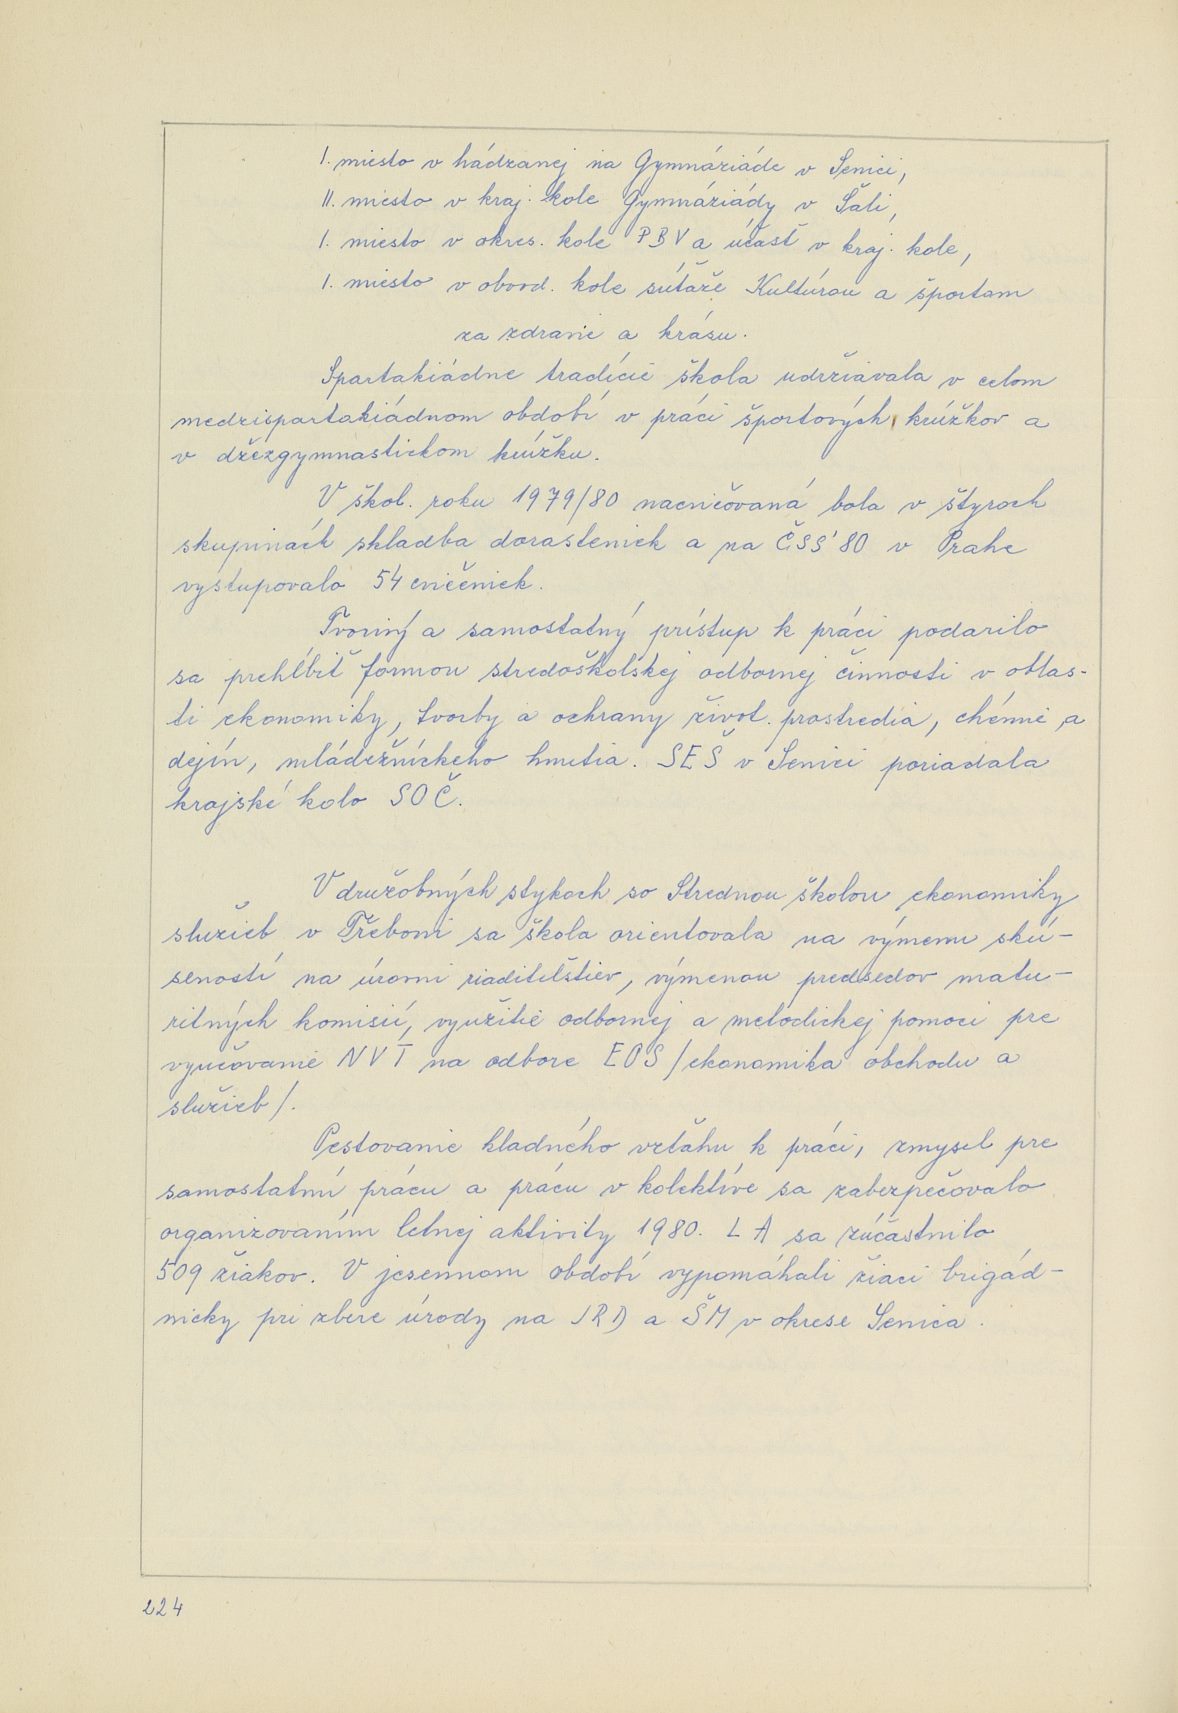 I. miesto v hádzanej na Gymnáziáde v Senici,
II. miesto v kraj. kole Gymnáziády v Šali,
I. miesto v okres. kole PBV a účasť v kraj. kole,
I. miesto v obvod. kole súťaže Kultúrou a športom
za zdravie a krásu.
Spartakiádne tradície škola udržiavala v celom
medzispartakiádnom období v práci športových krúžkov a
v džezgymnastickom krúžku.
V škol. roku 1979/80 nacvičovaná bola v štyroch
skupinách skladba dorasteniek a na ČSS'80 v Prahe
vystupovalo 54 cvičeniek.
Tvorivý a samostatný prístup k práci podarilo
sa prehĺbiť formou stredoškolskej odbornej činnosti v oblas-
ti ekonomiky, tvorby a ochrany život. prostredia, chémie a
dejín, mládežníckeho hnutia. SEŠ v Senici poriadala
krajské kolo SOČ.
V družobných stykoch so Strednou školou ekonomiky
služieb v Třeboni sa škola orientovala na výmenu skú-
seností na úrovni riaditeľstiev, výmenou predsedov matu-
ritných komisií, využitie odbornej a metodickej pomoci pre
vyučovanie NVT na odbore EOS /ekonomika obchodu a
služieb/.
Pestovanie kladného vzťahu k práci, zmysel pre
samostatnú prácu a prácu v kolektíve sa zabezpečovalo
organizovaním letnej aktivity 1980. LA sa zúčastnilo
509 žiakov. V jesennom období vypomáhali žiaci brigád-
nicky pri zbere úrody na JRD a ŠM v okrese Senica.
224